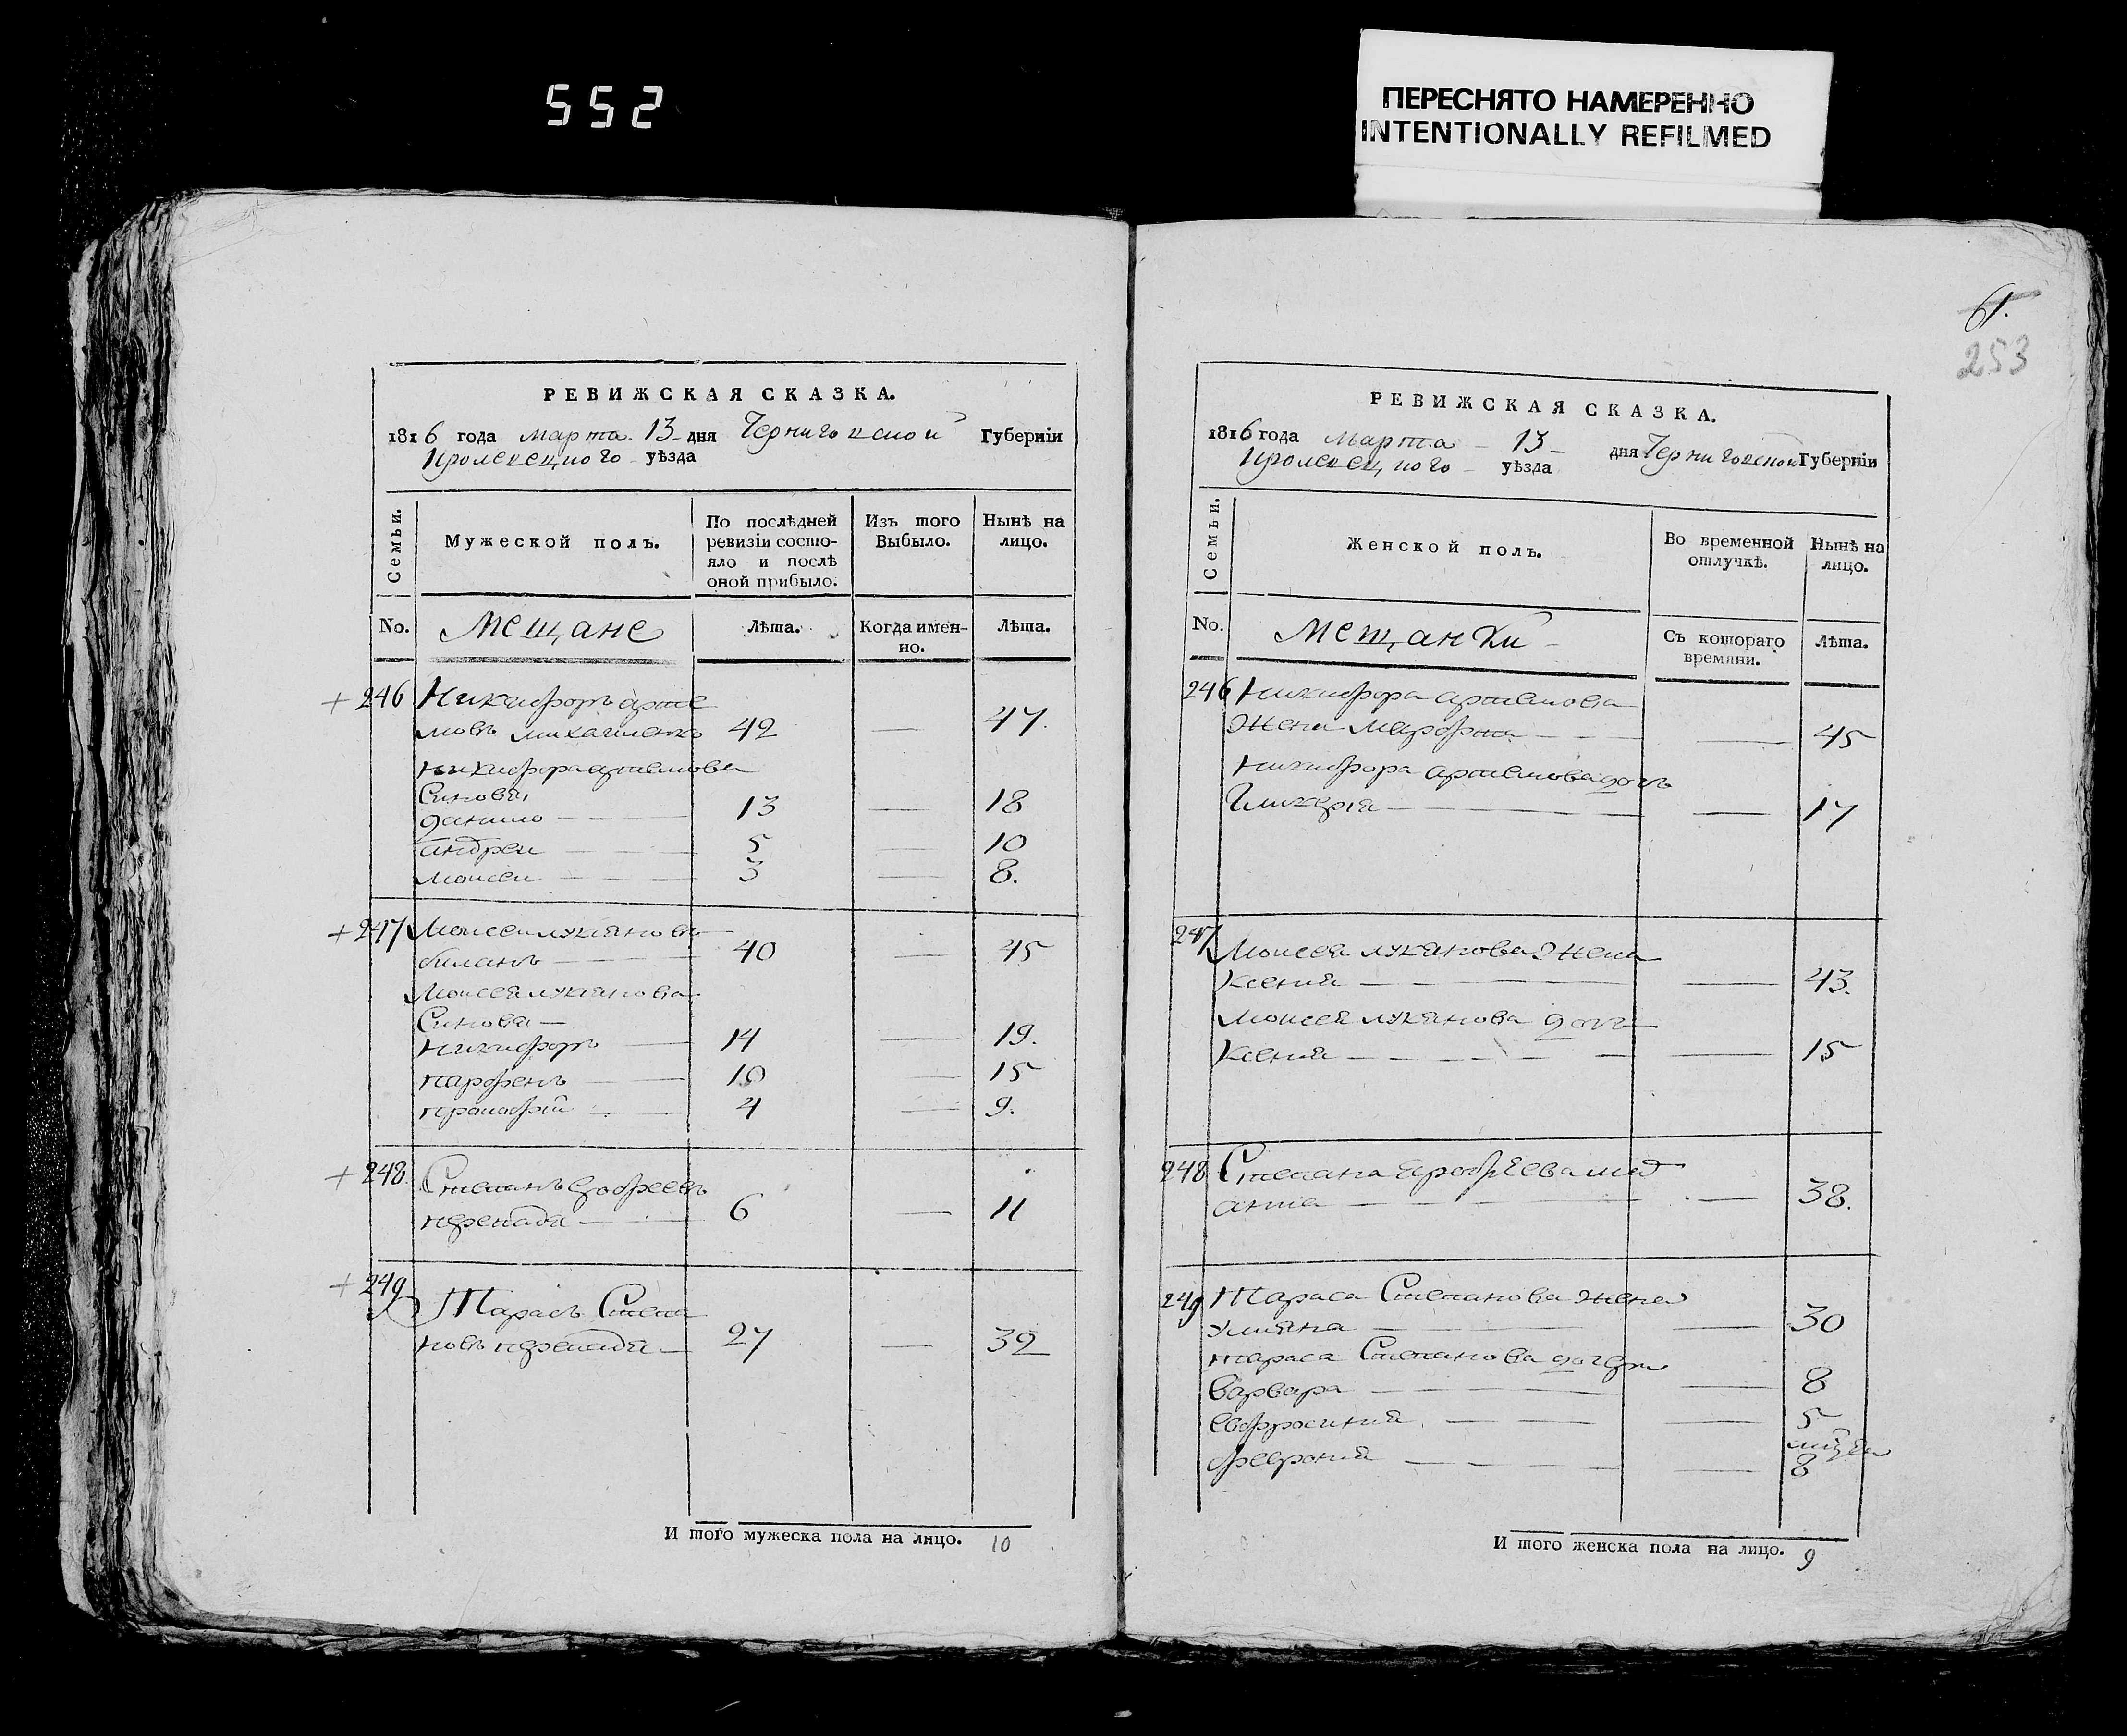 552
ПЕРЕСНЯТО НАМЕРЕННО
INTENTIONALLY REFILMED
61.
253
РЕВИЖСКАЯ СКАЗКА.
1816 года марта 13 дня Черниговской Губерніи
Кролевецкого уѣзда
Семьи.
Мужеской полъ.
По послѣдней ревизіи состо-
яло и послѣ оной прибыло.
Изъ того Выбыло.
Нынѣ на лицо.
No.
Мещане
Лѣта.
Когда имен-
но.
Лѣта.
246 Никифоръ арте
мовъ 42 — 47.
никифора артемова
Синовя,
данило — 13 — 18
андреи — 5 — 10
моисеи — 3 — 8.
247 Моисеи лукяновъ
40 — 45
Моисея лукянова
Синовя —
никифоръ — 14 — 19.
парфенъ — 10 — 15
прокофій — 4 — 9.
248. Степанъ ерофеевъ
перепада — 6 — 11
249 Тарасъ Степа
новъ перепада — 27 — 32
И того мужеска пола на лицо. 10
РЕВИЖСКАЯ СКАЗКА.
1816 года Марта — 13 — дня Черниговской Губерніи
Кролевецкого — уѣзда
Семьи.
Женской полъ.
Во временной отлучкѣ.
Нынѣ на лицо.
No.
Мещанки
Съ котораго времяни.
Лѣта.
246 Никифора артемова
Жена Марфа — — 45
Никифора артемова дочь
Гликерія — — 17
247 Моисея лукянова Жена
Ксения — — 43.
Моисея лукянова дочь
Ксения — — 15
248 Степана ерофеева
анна — — 38.
249 Тараса Степанова жена
Улияна — — 30
тараса Степанова дочери
Варвара — — 8
евфросиния — — 5
феврония — — 8
И того женска пола на лицо. 9